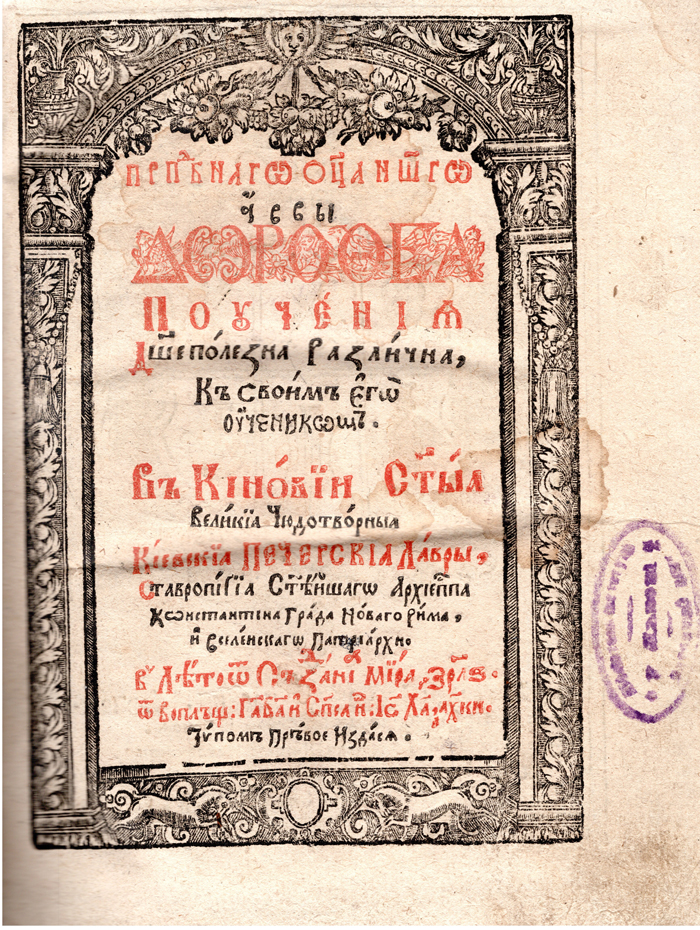 ПРПⷣБНАГѠ ОЦ҃А НШ҃ГѠ
А҆ВВЫ
ДѠРОѲЕА
ПОꙋЧЕ́НІѦ
Дш҃еполе́зна Разли́чна,
Къ Свои́мъ Е҆гѡ̀
Оу҆ченикѡмъ.
Въ Кіно́вїи Ст҃ы́ѧ
Вели́кїѧ Чюдотво́рныѧ
Кі́евскїѧ Пече́рскїѧ Ла́вры,
Ставропи́гїѧ Ст҃ѣ́йшагѡ Архїеп҃па
Кѡнстантіна Гра́да Но́ваго Ри́ма,
и҆ Вселе́нскагѡ Патрїа́рхи.
въ Лѣ́то ѿ Созда́нїѧ мі́ра, ҂зрл҃ѕ.
ѿ воплощ: Га҃ Ба҃ и҆ Сп҃са
Ту́помъ Пръ́вое И҆здасѧ.